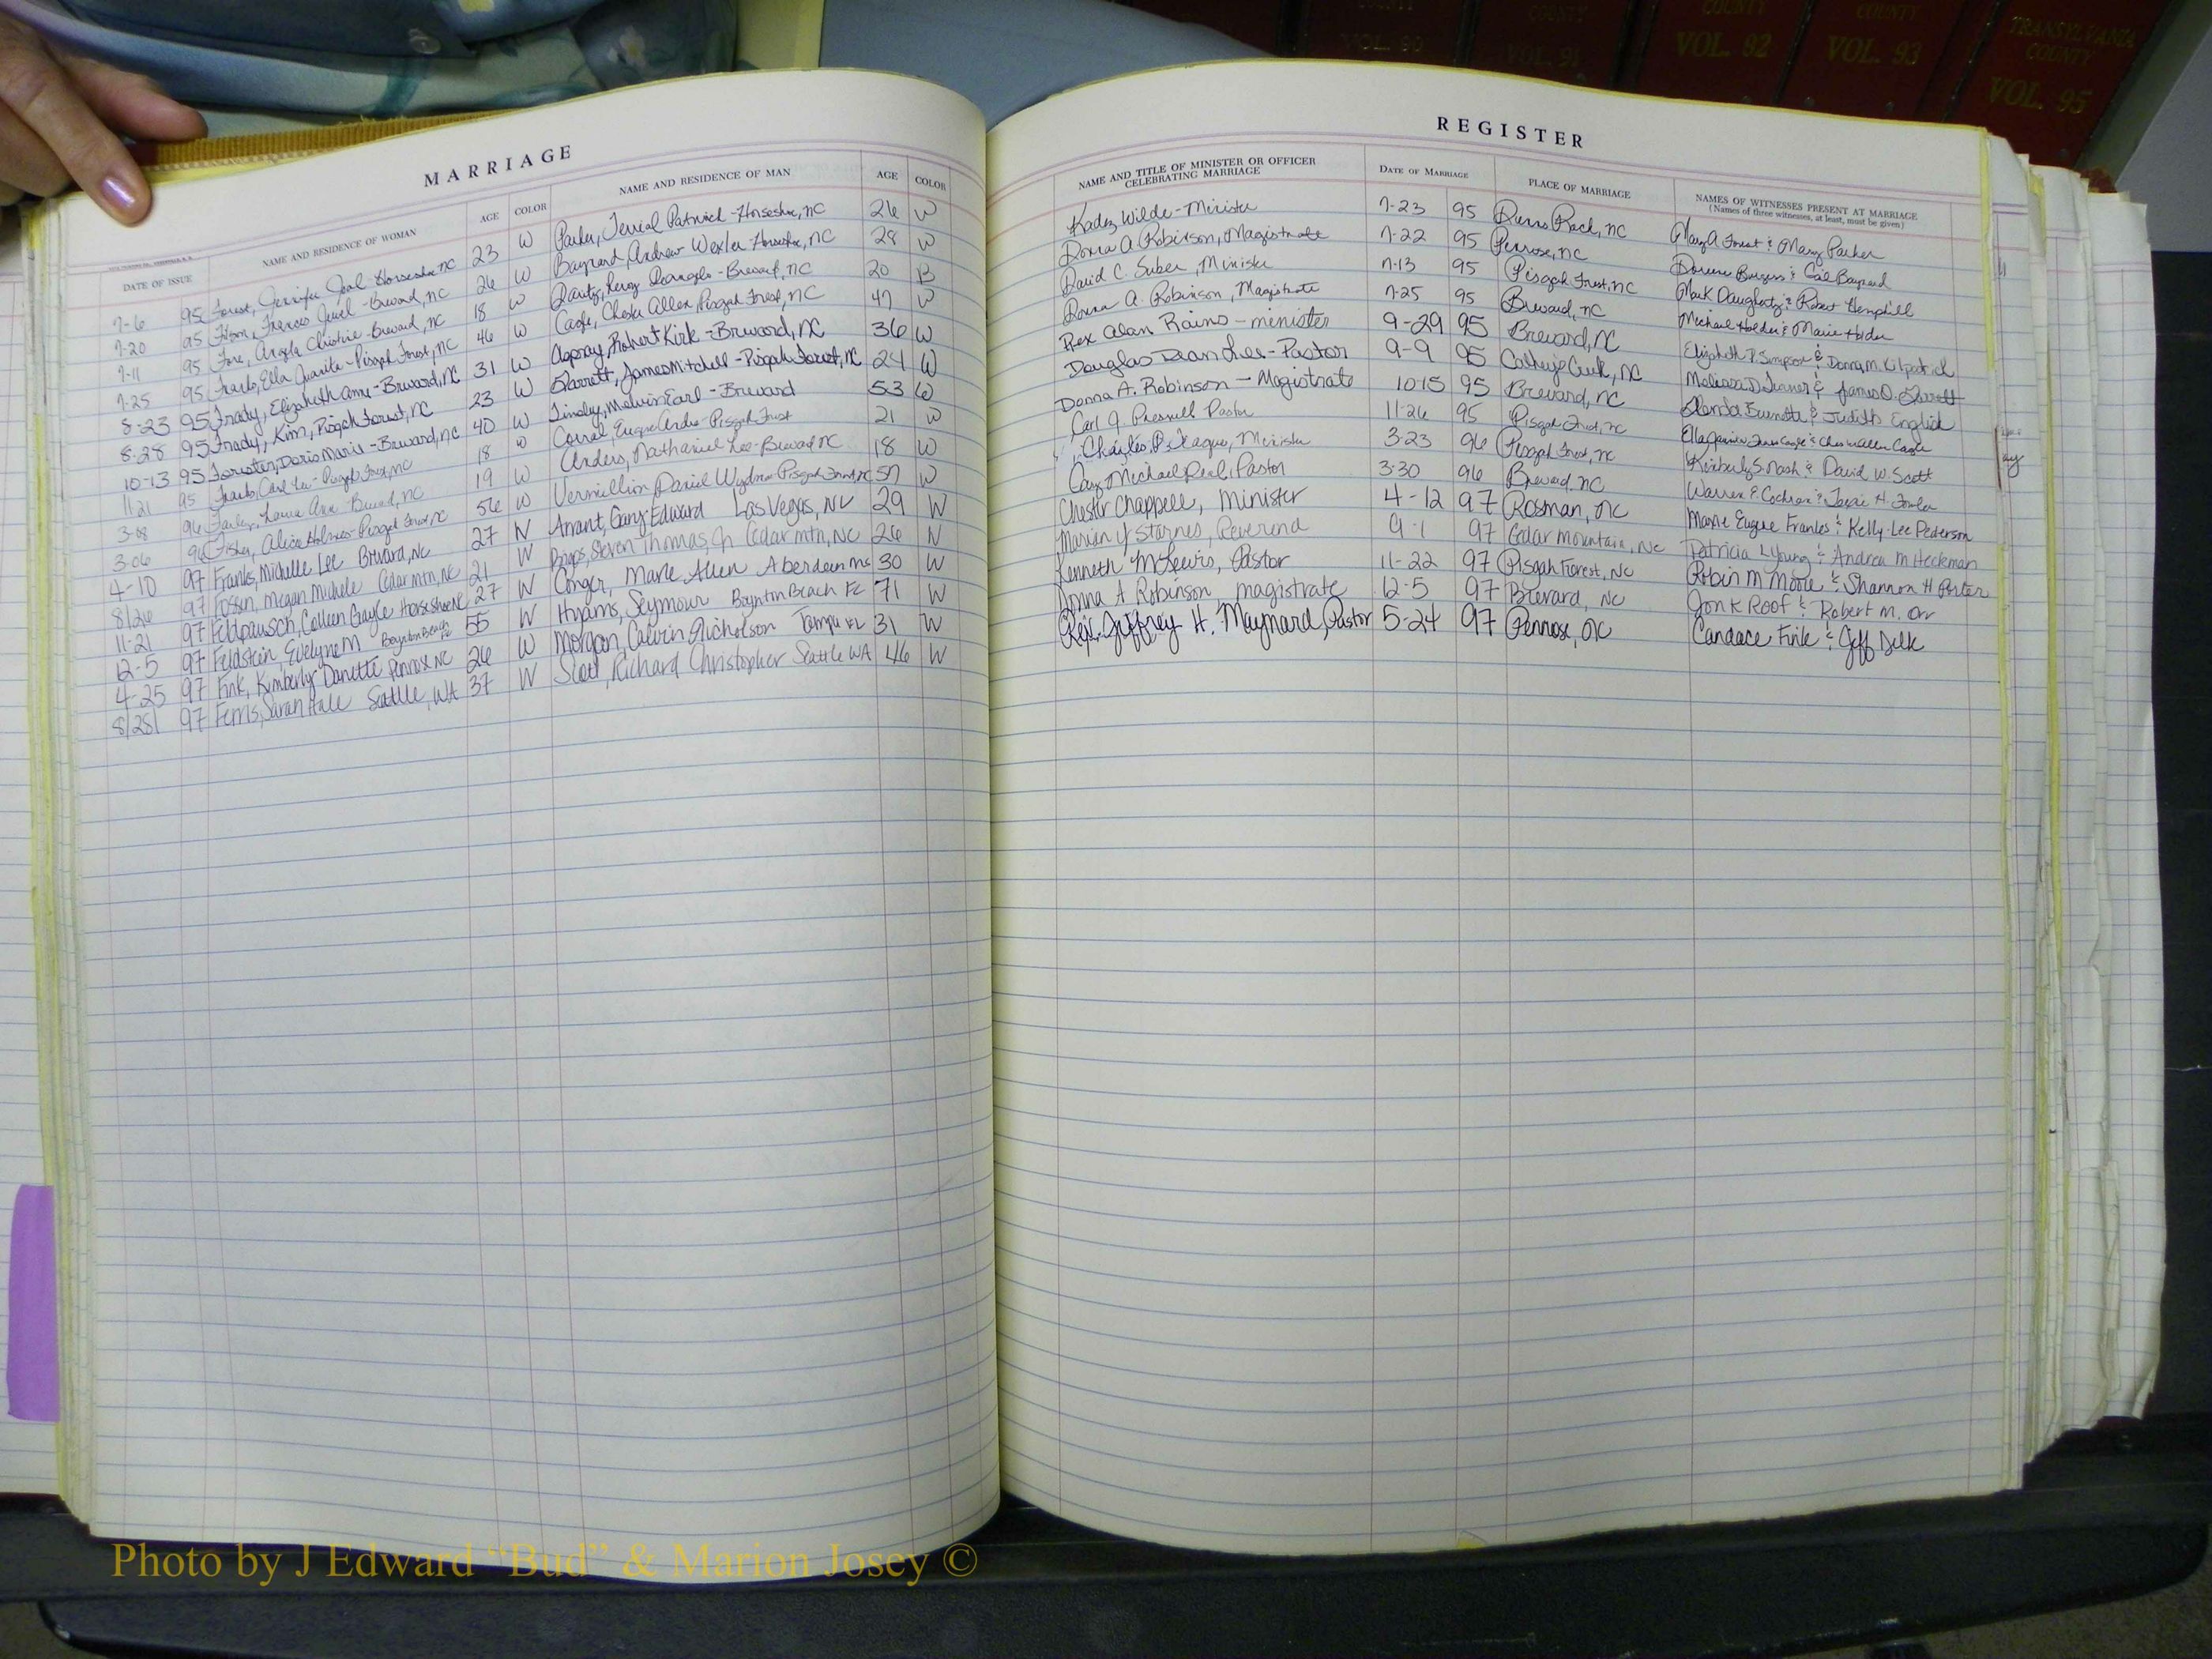 COUNTY
VOL. 90
COUNTY
VOL. 91
COUNTY
VOL. 92
COUNTY
VOL. 93
TRANSYLVANIA
COUNTY
VOL. 95
MARRIAGE
DATE OF ISSUE NAME AND RESIDENCE OF WOMAN AGE COLOR NAME AND RESIDENCE OF MAN AGE COLOR
7-6 95 Forest, Jennifer Horseshoe NC 23 W Parker, Patrick - Horseshoe, NC 26 W
7-20 95 Frances Jewel - Brevard, NC 26 W Baynard, Andrew Wexler - Horseshoe, NC 28 W
7-11 95 Fore, Angela Christine - Brevard, NC 18 W Leroy - Brevard, NC 20 B
7-25 95 Franks, Ella Juanita - Pisgah Forest, NC 46 W Cagle, Chester Allen, Pisgah Forest, NC 47 W
8-23 95 Frady, Elizabeth Anne - Brevard, NC 31 W Robert Kirk - Brevard, NC 36 W
8-28 95 Frady, Kim, Pisgah Forest, NC 23 W James Mitchell - Pisgah Forest, NC 24 W
10-13 95 Forester, Doris Marie - Brevard, NC 40 W Tinsley, Melvin Earl - Brevard 53 W
11-21 95 Franks, Pisgah Forest, NC 18 W Eugene Andre - Pisgah Forest 21 W
3-08 96 Laura Ann - Brevard, NC 19 W Anders, Nathaniel Lee - Brevard NC 18 W
3-06 96 Fisher, Alice Holmes - Pisgah Forest, NC 56 W Vermillion, Daniel Pisgah Forest, NC 57 W
4-10 97 Franks, Michelle Lee Brevard, NC 27 W Arrant, Gary Edward Las Vegas, NV 29 W
8/26 97 Megan Michele Cedar Mtn, NC 21 W Steven Thomas, Jr Cedar mtn, NC 26 W
11-21 97 Feldpausch, Colleen Gayle Horseshoe NC 27 W Conger, Allen Aberdeen 30 W
12-5 97 Feldstein, Evelyne M Boynton Beach FL 55 W Hyams, Seymour Boynton Beach FL 71 W
4-25 97 Fink, Kimberly Danette Penrose NC 26 W Morgan, Calvin Nicholson Tampa FL 31 W
8/28 97 Ferris, Sarah Seattle, WA 37 W Scott, Richard Christopher Seattle WA 46 W
REGISTER
NAME AND TITLE OF MINISTER OR OFFICER CELEBRATING MARRIAGE DATE OF MARRIAGE PLACE OF MARRIAGE NAMES OF WITNESSES PRESENT AT MARRIAGE
(Names of three witnesses, at least, must be given)
Wilde - Minister 7-23 95 NC Mary A Forest & Mary Parker
Donna A. Robinson, Magistrate 7-22 95 Penrose, NC Burgess & Gail Baynard
David C. Suber, Minister 7-13 95 Pisgah Forest, NC Mark Daugherty & Robert Hemphill
Donna A. Robinson, Magistrate 7-25 95 Brevard, NC Michael Holden & Marie Holden
Rex Alan Rains - minister 9-29 95 Brevard, NC Elizabeth P. Simpson & Donna M. Kilpatrick
Douglas Dean Lee - Pastor 9-9 95 Creek, NC Melissa D. & James D.
Donna A. Robinson - Magistrate 10-15 95 Brevard, NC Burnette & Judith English
Carl J. Presnell Pastor 11-26 95 Pisgah Forest, NC Ella Juanita Franks Cagle & Chester Allen Cagle
Charles P. Teague, Minister 3-23 96 Pisgah Forest, NC Kimberly S. Nash & David W. Scott
Gary Michael Pastor 3-30 96 Brevard, NC Warren P. Cochran &
Chester Chappell, Minister 4-12 97 Rosman, NC Eugene Franks & Kelly Lee Pederson
Marion Y Starnes, Reverend 9-1 97 Cedar Mountain, NC Patricia L Young & Andrea M Heckman
Kenneth M Lewis, Pastor 11-22 97 Pisgah Forest, NC Robin M Moore & Shannon H Porter
Donna A Robinson, magistrate 12-5 97 Brevard, NC Jon K Roof & Robert M. Orr
Jeffrey H. Maynard, Pastor 5-24 97 Penrose, NC Candace Fink & Jeff
Photo by J Edward “Bud” & Marion Josey ©